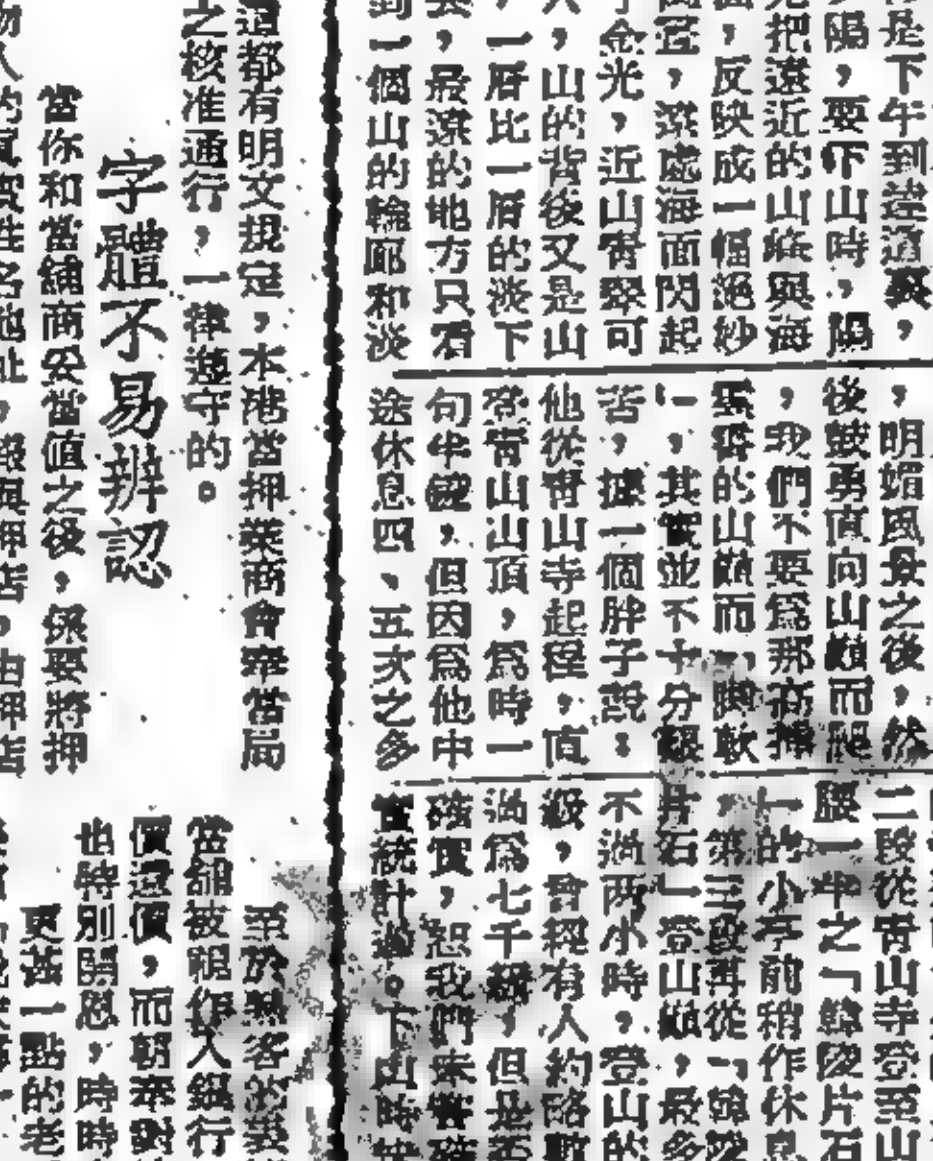 是下午到達
陽，要下山時，陽
把遠近的山巒與海
，反映成一幅絕妙
宜，遠處海面閃起
金光，近山青翠可
，山的背後又是山
，一層比一層的淡下
，最遠的地方只看
到一個山的輪廓和淡
，明媚風景之後，然
後鼓勇直向山巔而爬
，我們不要爲那高插
雲霄的山巔而「脚軟
」，其實並不十分艱
苦，據一個胖子說：
他從青山寺起程，直
登青山山頂，爲時一
句半鐘，但因爲他中
途休息四、五次之多
二段從青山寺登至山
腰一半之「韓陵片石
」的小亭前稍作休息
，第三段再從「韓陵
片石」登山巔，最多
不過两小時。登山的
級，曾經有人約略數
過爲七千級，但是否
確實，恕我們未嘗確
實統計過。下山時
這都有明文規定，本港當押業商會奉當局
之核准通行，一律遵守的。
字體不易辨認
當你和當舖商妥當值之後，係要將押
物人的真實姓名地址，與押店，由押店
至於熟客的
當舖被視作人行
價還價，而朝奉對
也特別開恩，時時
更甚一點的老